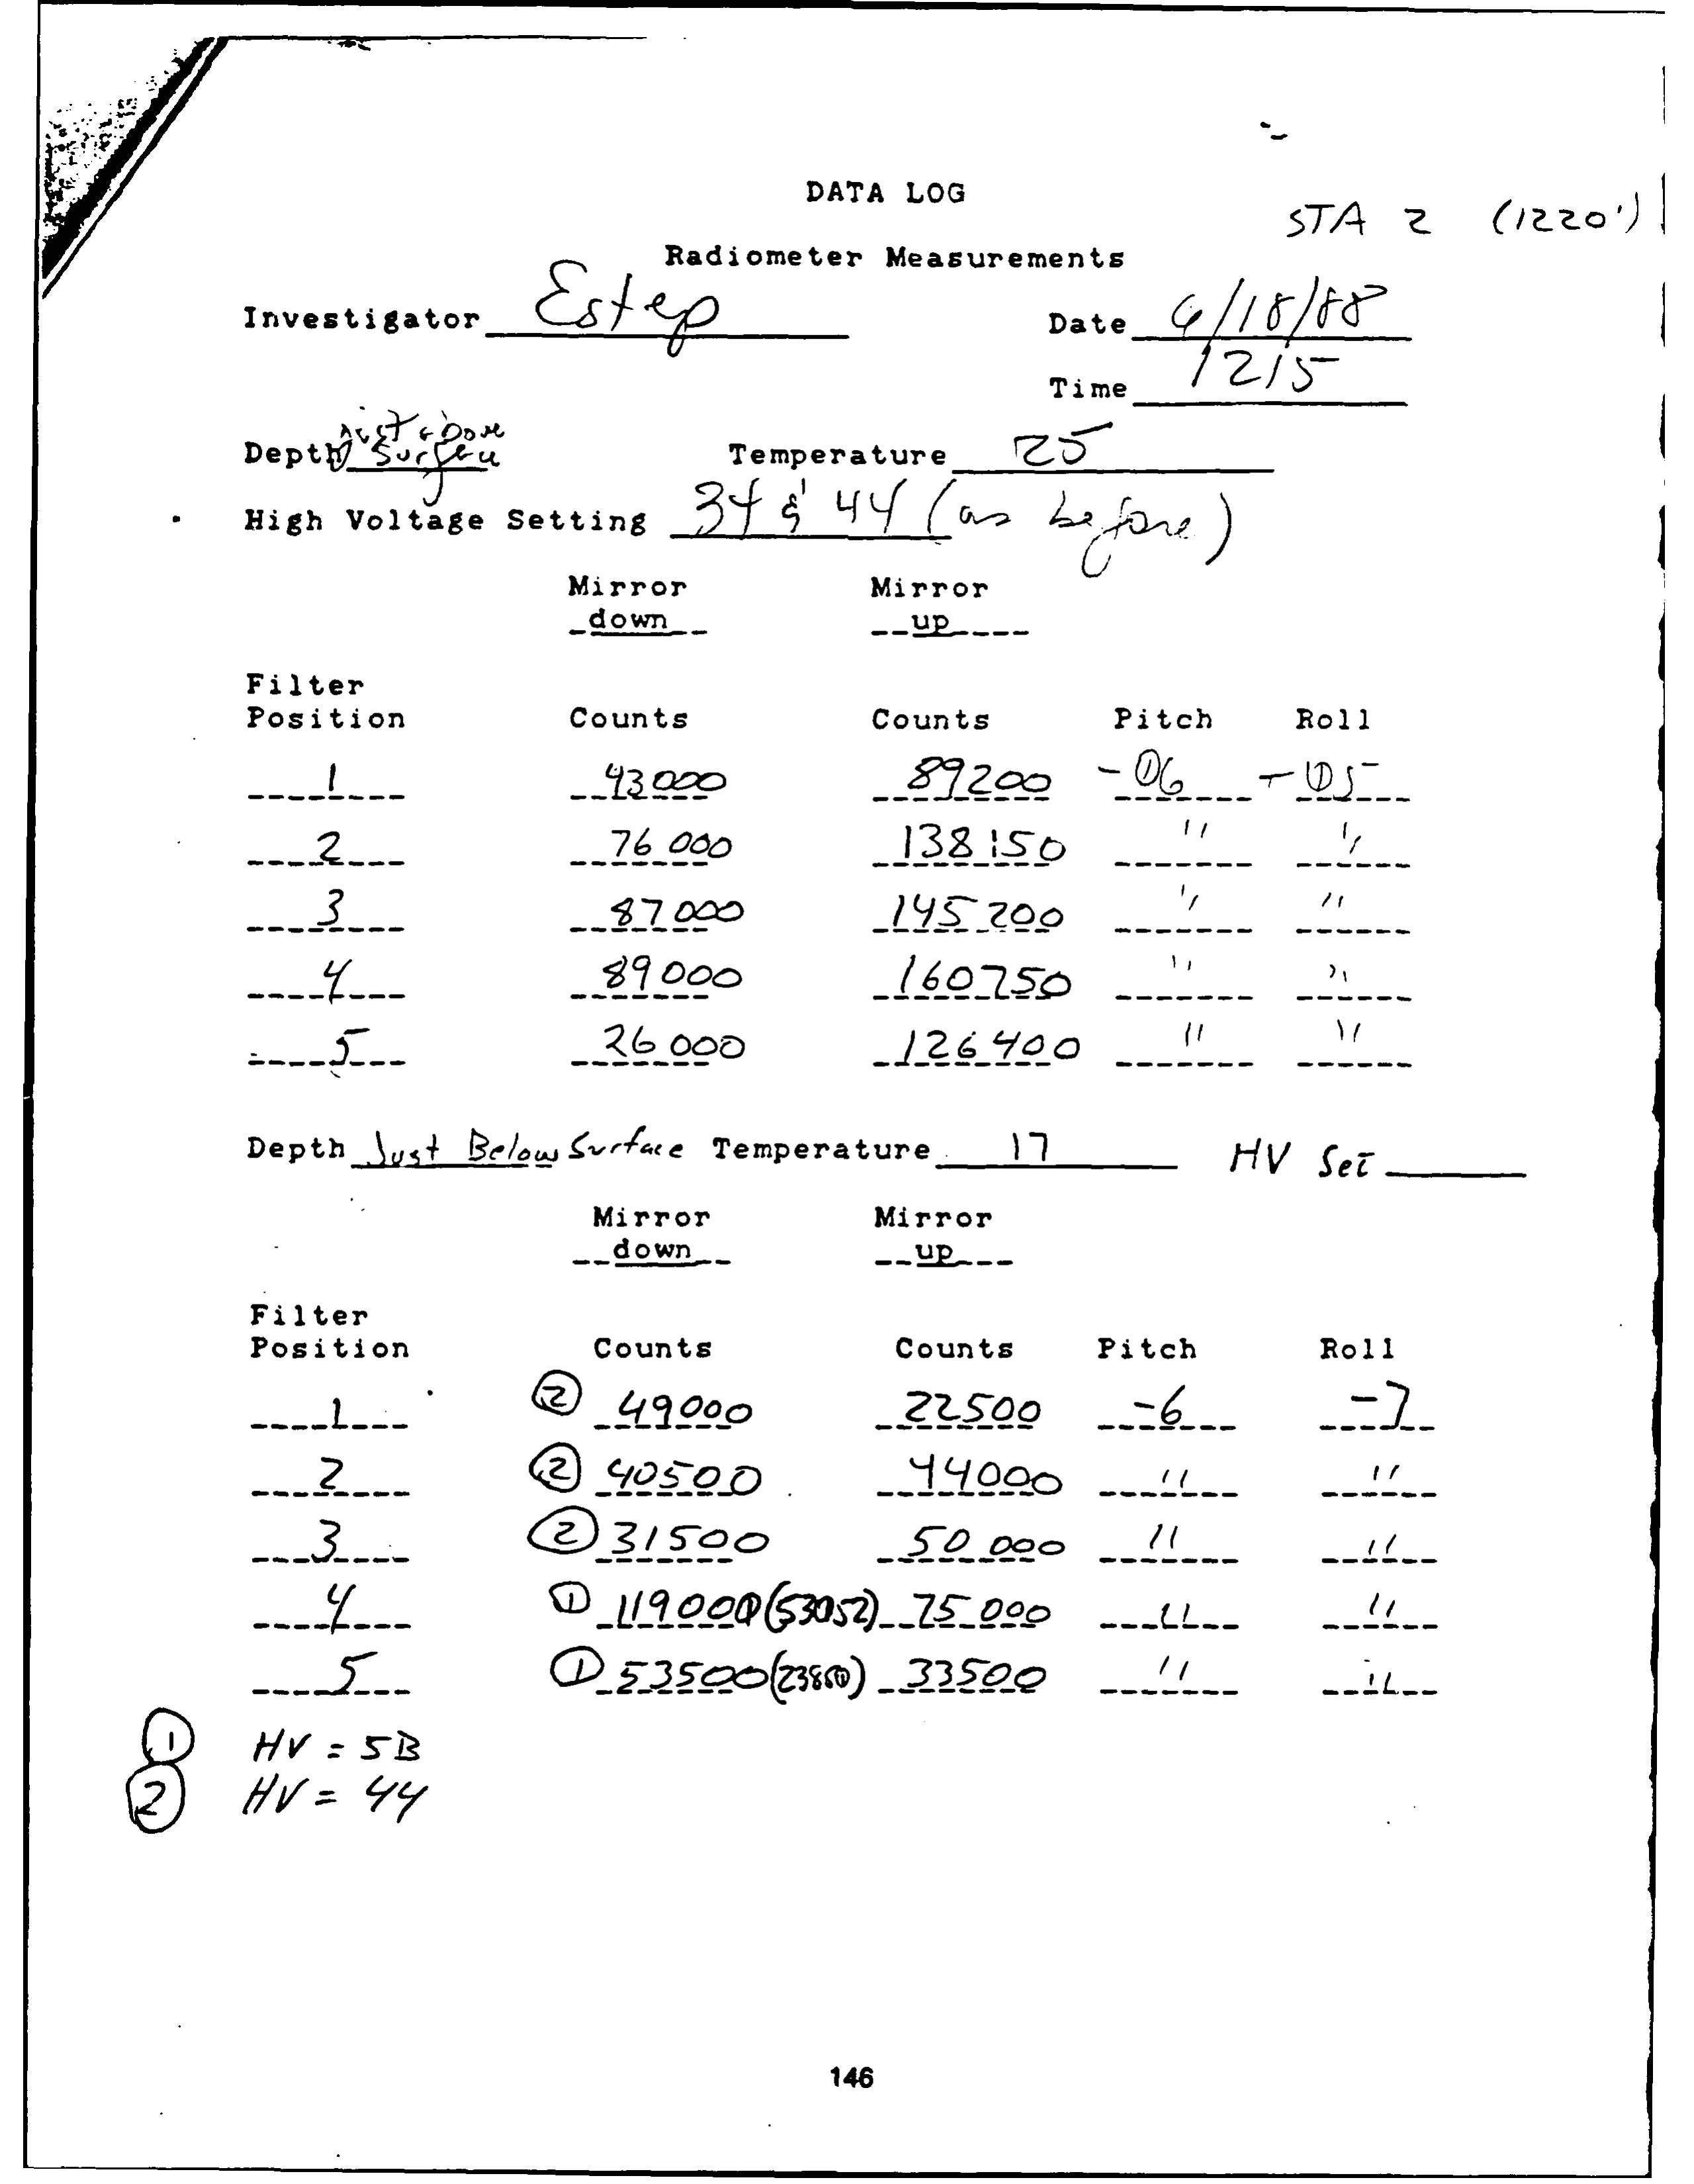 DATA LOG
STA 2 (1220')
Radiometer Measurements
Investigator Estep Date 6/18/88
Time 1215
Depth just above surface Temperature 25
High Voltage Setting 34 & 44 (as before)
Mirror Mirror
down up
Filter
Position Counts Counts Pitch Roll
1 43000 89200 -06 -05
2 76000 138150 " "
3 87000 145200 " "
4 89000 160750 " "
5 26000 126400 " "
Depth Just Below Surface Temperature 17 HV Set
Mirror Mirror
down up
Filter
Position Counts Counts Pitch Roll
1 ② 49000 22500 -6 -7
2 ② 40500 44000 " "
3 ② 31500 50000 " "
4 ① 119000 (53052) 75000 " "
5 ① 53500 33500 " "
① HV = 5B
② HV = 44
146